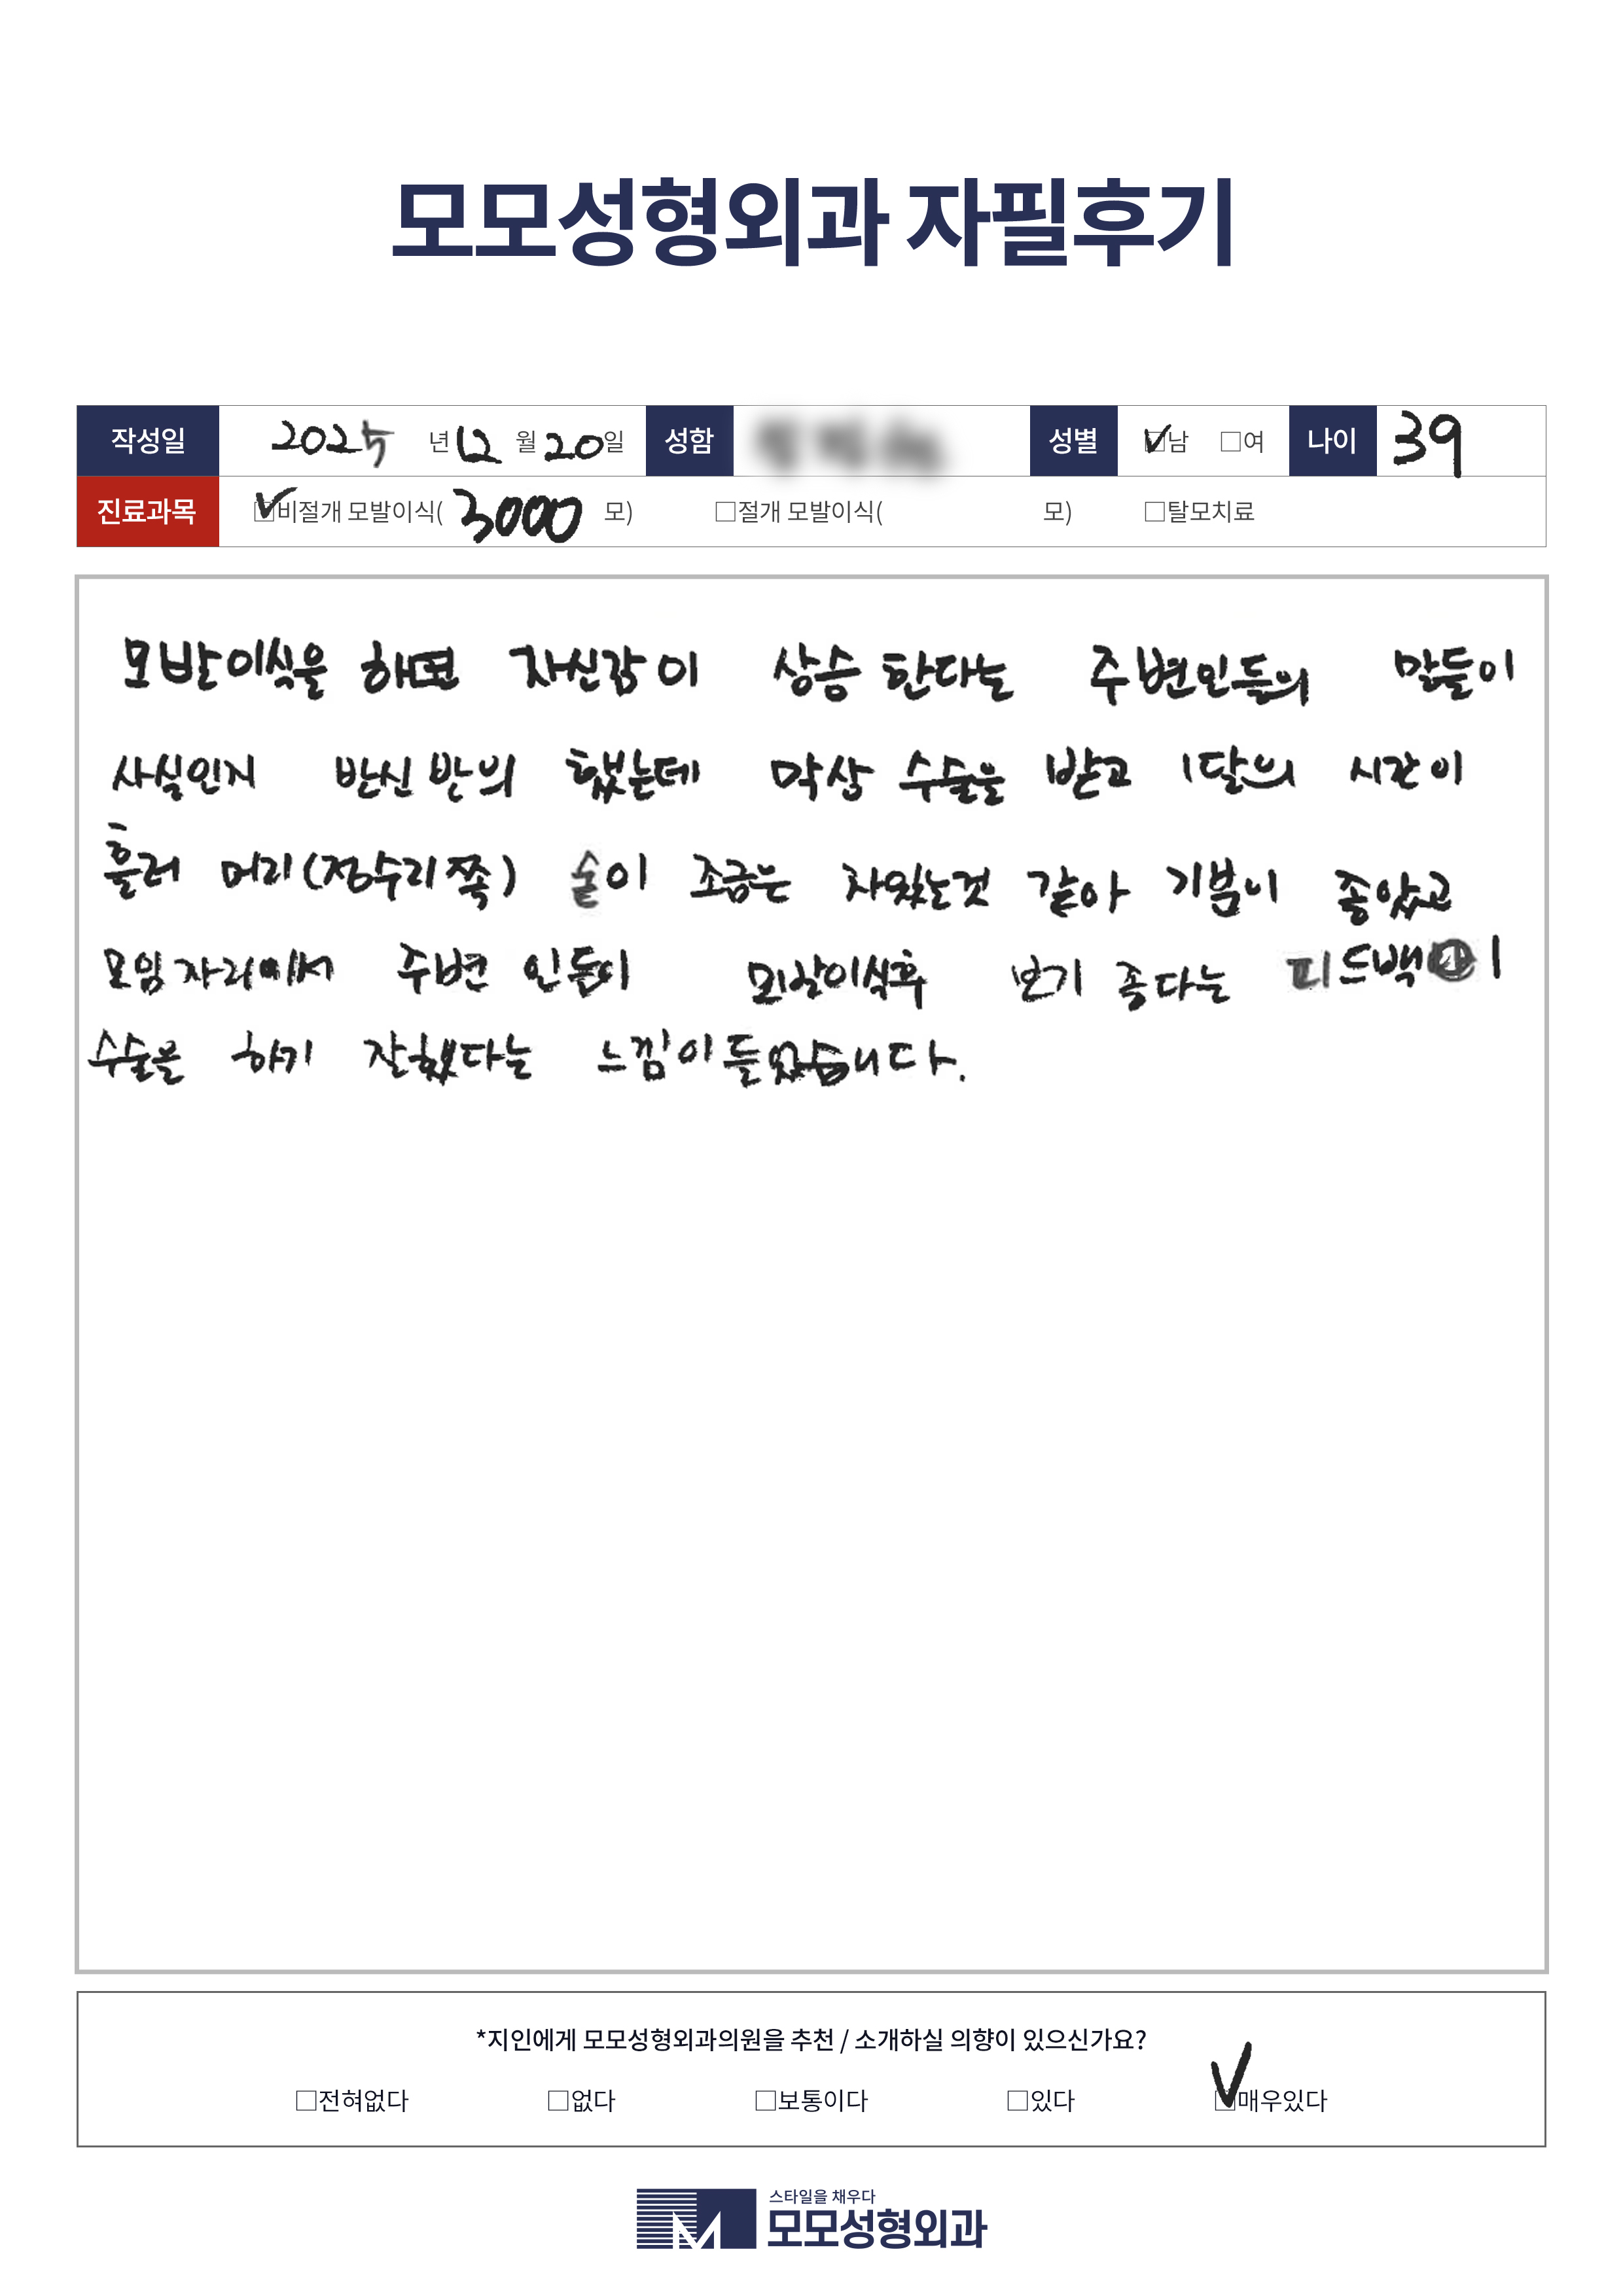 모모성형외과 자필후기
작성일 2025년 12월 20일 성함 성별 ☑남 □여 나이 39
진료과목 ☑비절개 모발이식( 3000 모) □절개 모발이식( 모) □탈모치료
모발이식을 하면 자신감이 상승한다는 주변인들의 말들이
사실인지 반신반의 했는데 막상 수술을 받고 1달의 시간이
흘러 머리(정수리쪽) 숱이 조금은 차있는것 같아 기분이 좋았고
모임자리에서 주변 인들이 모발이식후 보기 좋다는 피드백이
수술을 하기 잘했다는 느낌이 들었습니다.
*지인에게 모모성형외과의원을 추천 / 소개하실 의향이 있으신가요?
□전혀없다 □없다 □보통이다 □있다 ☑매우있다
스타일을 채우다
모모성형외과